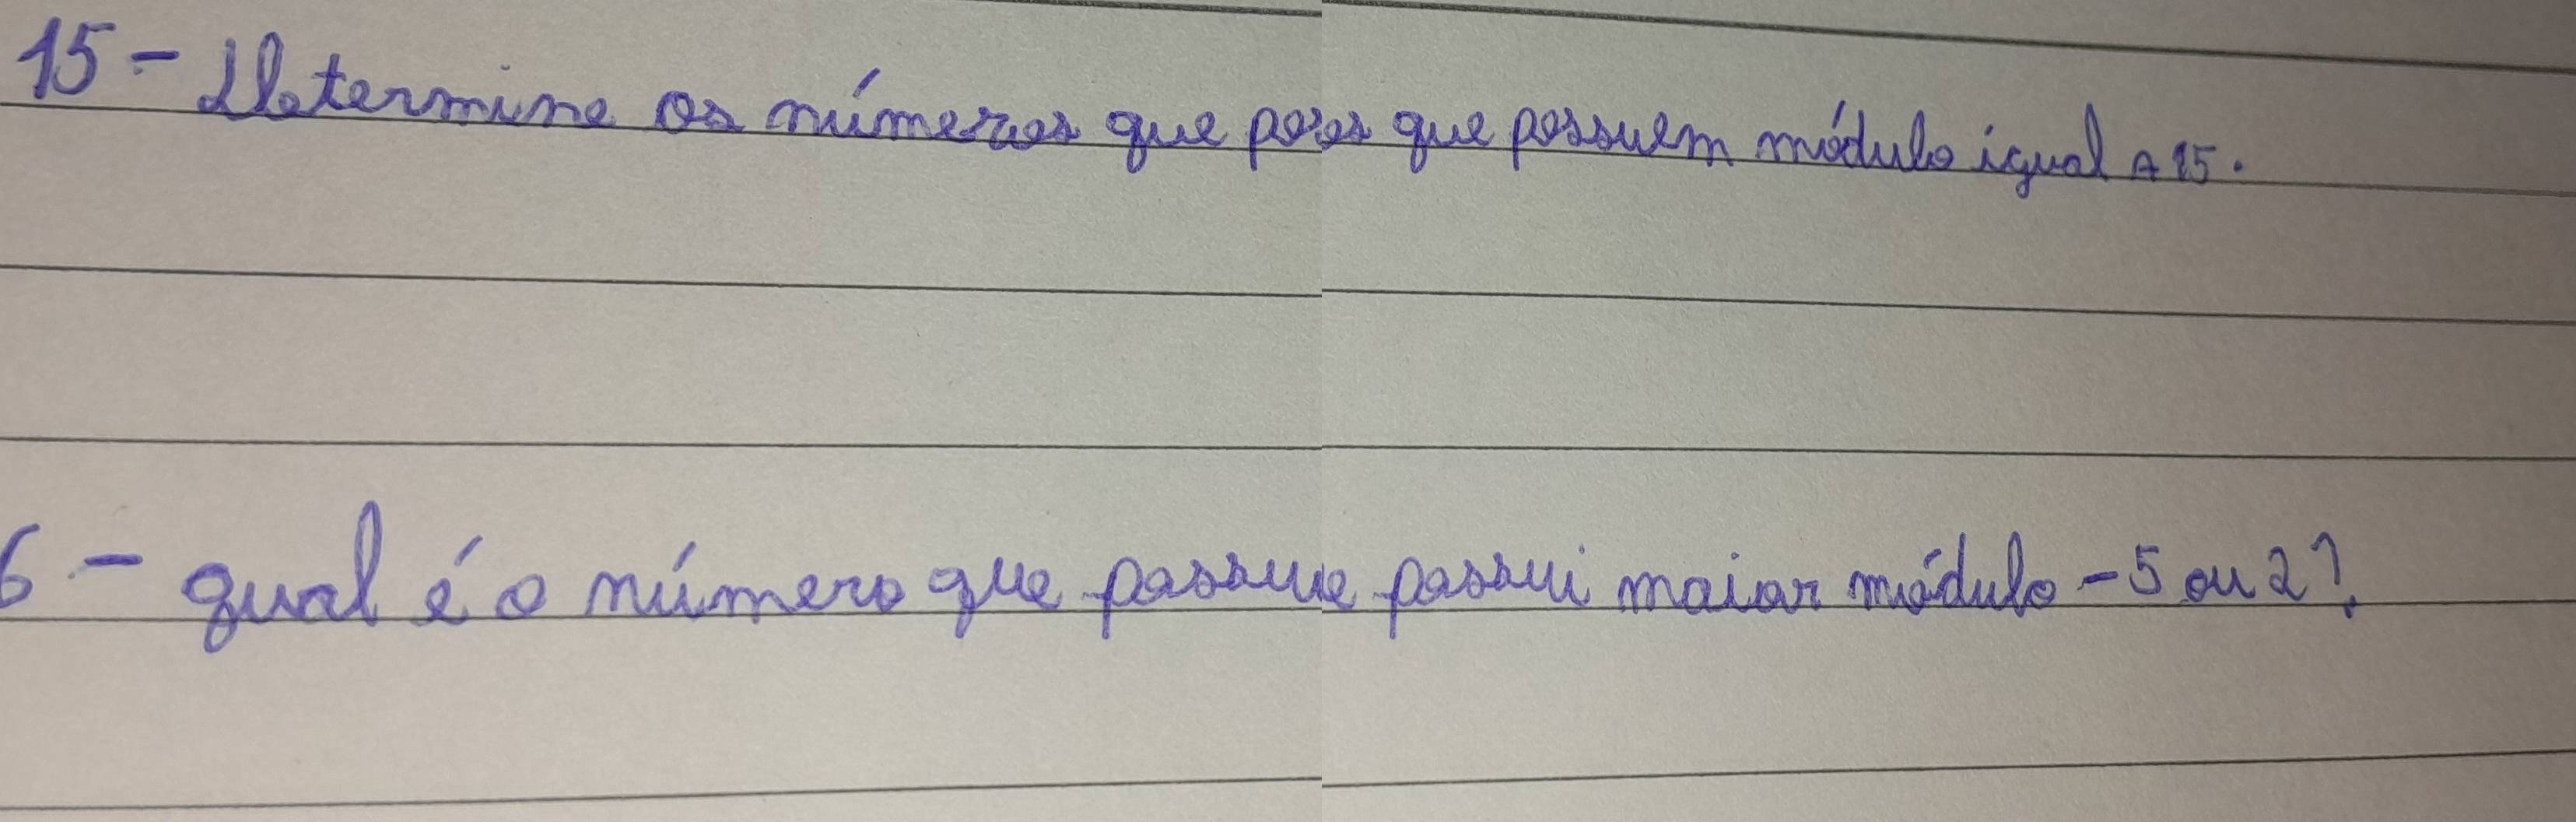 15 - Determine os números que posos que possuem módulo igual A 15.
6 - qual é o número que possue possui maior módulo -5 ou 2?